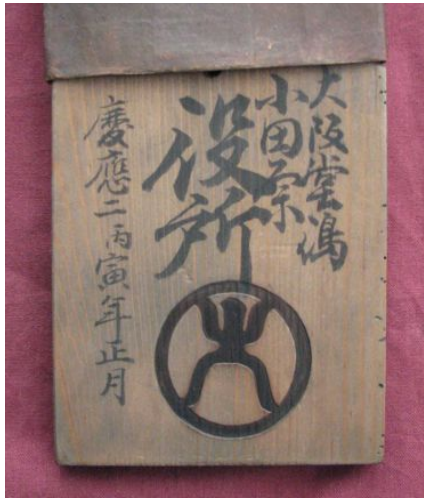 大阪堂嶋
小田宗
役所
慶應二丙寅年正月